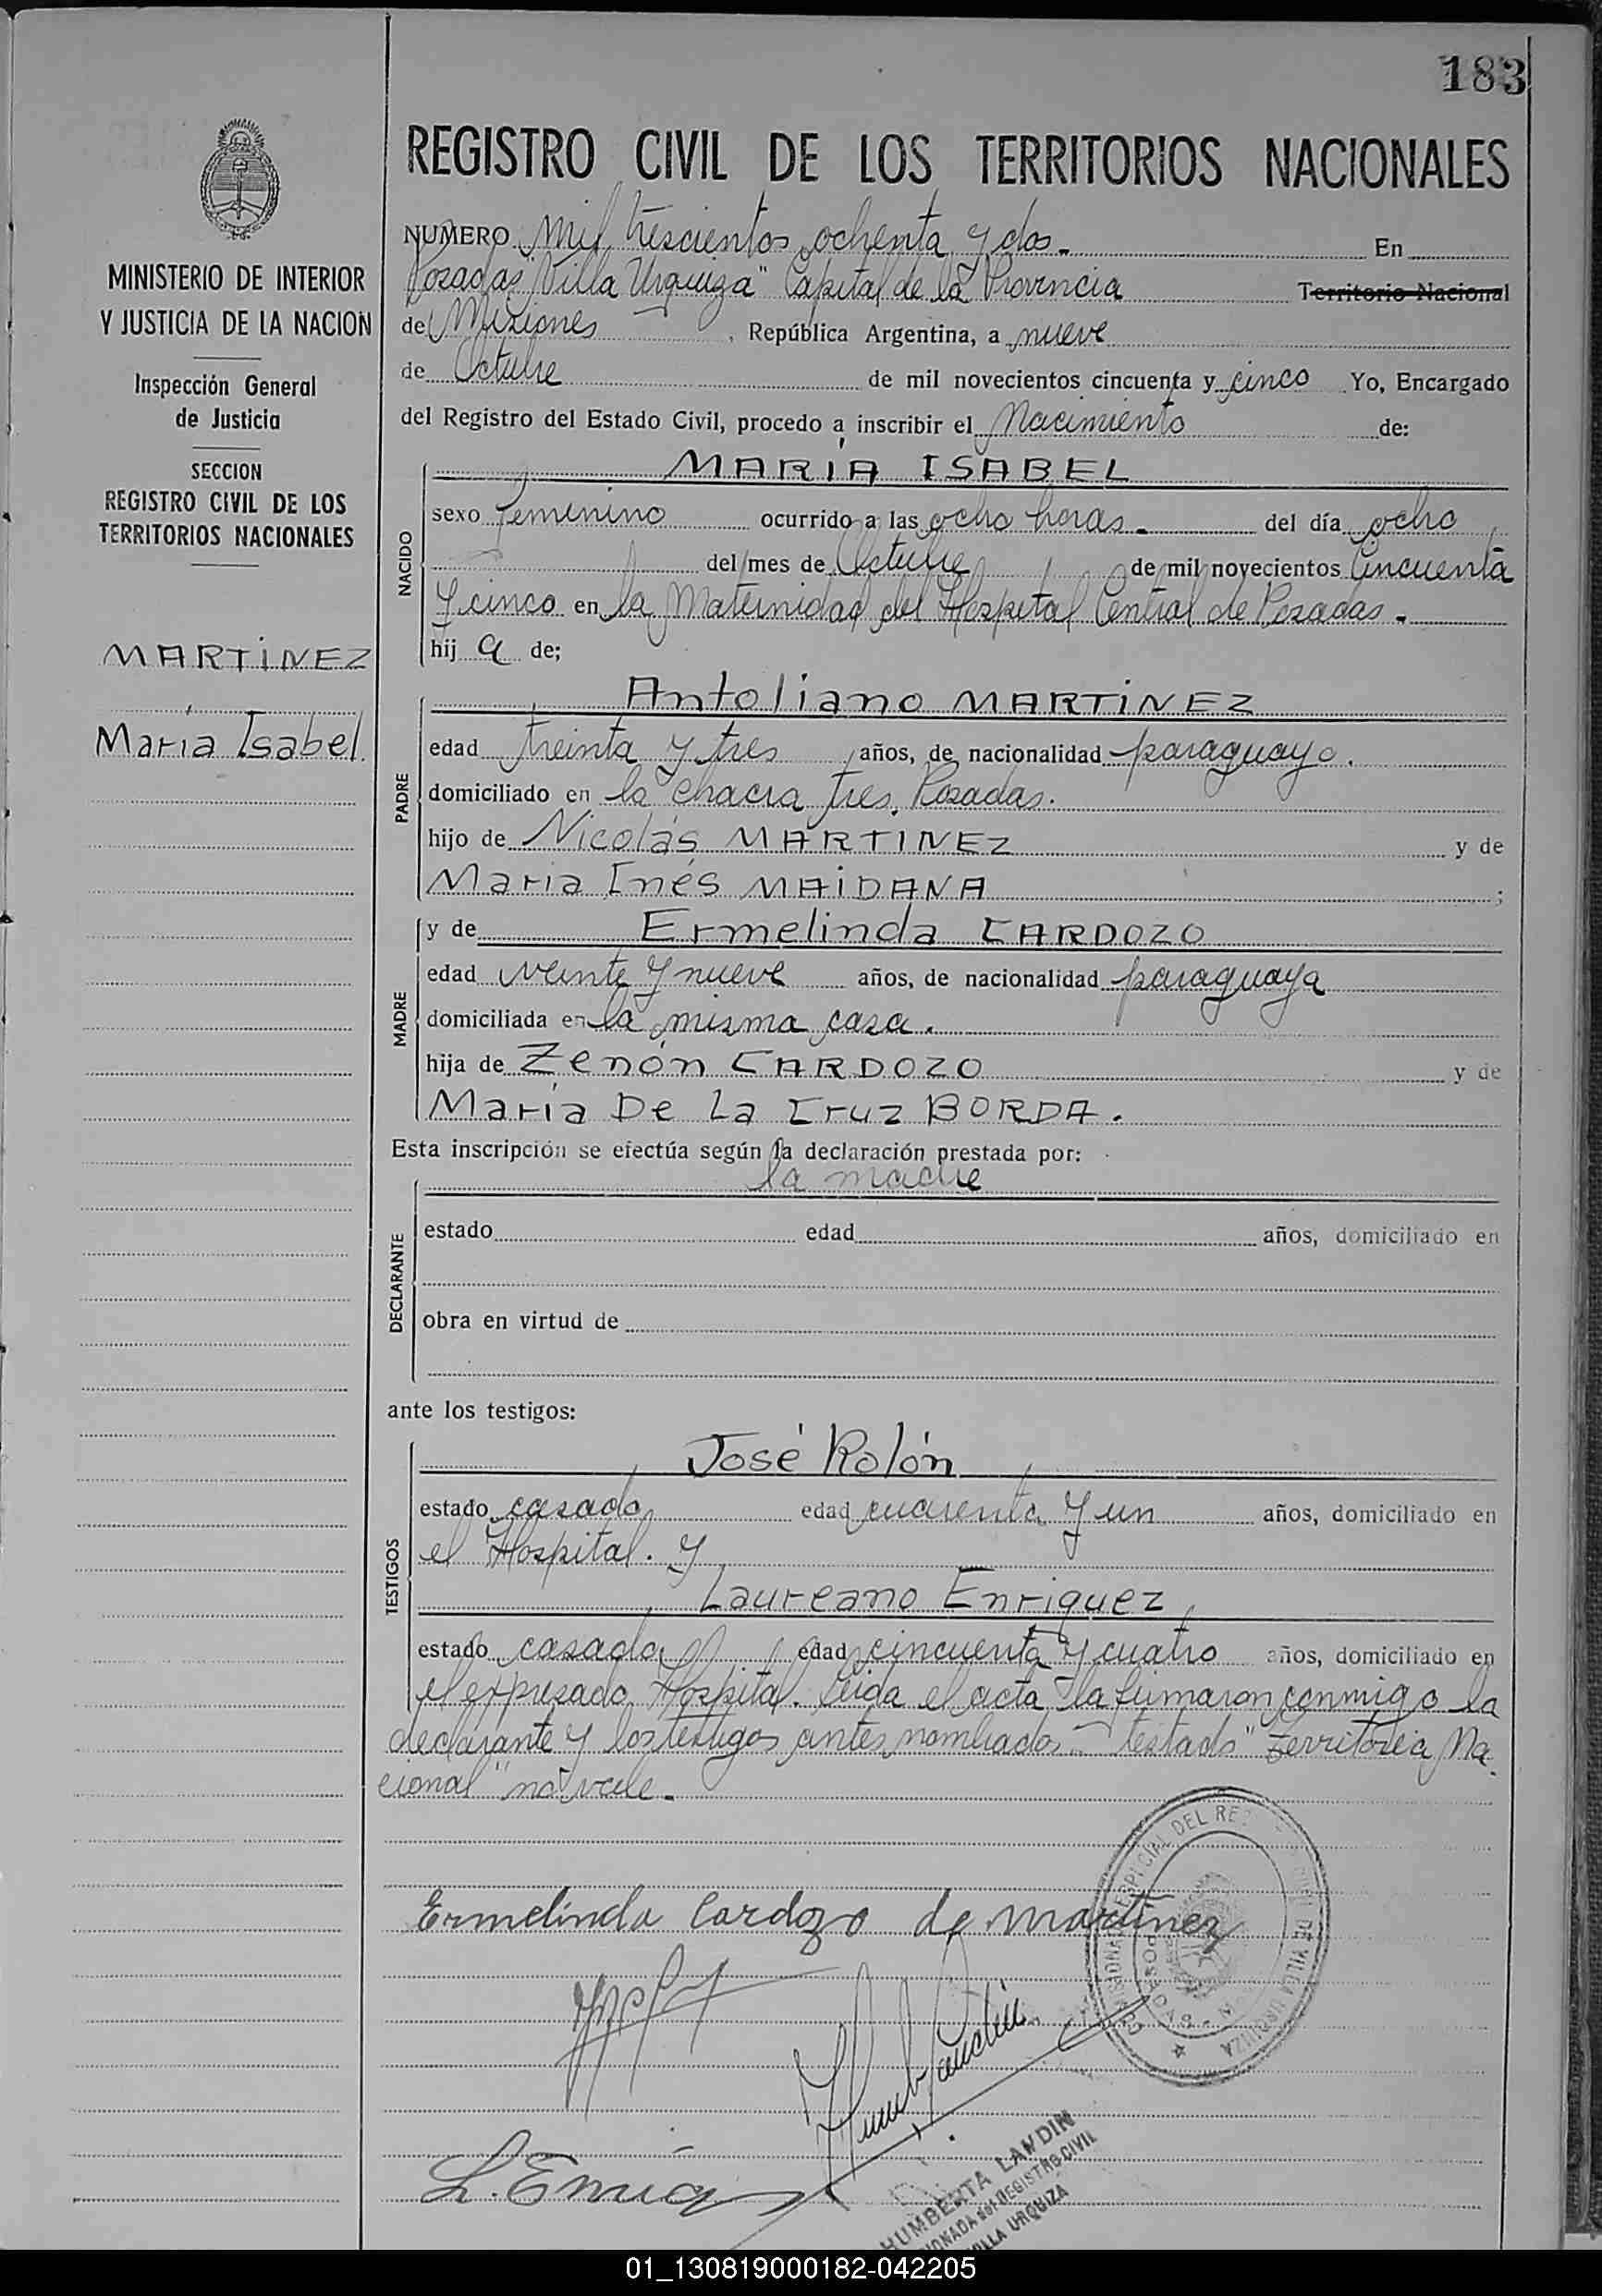 183
REGISTRO CIVIL DE LOS TERRITORIOS NACIONALES
MINISTERIO DE INTERIOR
Y JUSTICIA DE LA NACION
Inspección General
de Justicia
SECCION
REGISTRO CIVIL DE LOS
TERRITORIOS NACIONALES
MARTINEZ
María Isabel.
NUMERO Mil trescientos ochenta y dos.- En
Posadas "Villa Urquiza" Capital de la Provincia Territorio Nacional
de Misiones, República Argentina, a nueve
de Octubre de mil novecientos cincuenta y cinco Yo, Encargado
del Registro del Estado Civil, procedo a inscribir el Nacimiento de:
NACIDO
MARÍA ISABEL
sexo femenino ocurrido a las ocho horas.- del día ocho
del mes de Octubre de mil novecientos Cincuenta
y cinco en la Maternidad del Hospital Central de Posadas.-
hij a de;
PADRE
Antoliano MARTINEZ
edad treinta y tres años, de nacionalidad paraguayo.
domiciliado en la chacra tres, Posadas.
hijo de Nicolás MARTINEZ y de
Maria Inés MAIDANA ;
MADRE
y de Ermelinda CARDOZO
edad veinte y nueve años, de nacionalidad paraguaya
domiciliada en la misma casa.
hija de Zenón CARDOZO y de
María De La Cruz BORDA.
Esta inscripción se efectúa según la declaración prestada por:
DECLARANTE
la madre
estado edad años, domiciliado en
obra en virtud de
ante los testigos:
TESTIGOS
José Rolón
estado casado edad cuarenta y un años, domiciliado en
el Hospital. y
Laureano Enriquez
estado casado edad cincuenta y cuatro años, domiciliado en
el expresado Hospital. Leída el acta la firmaron conmigo la
declarante y los testigos antes nombrados.- testado "Territorio Na-
cional" no vale.-
Ermelinda Cardozo de martinez
L. Enriq
HUMBERTA LANDIN
DEL REGISTRO CIVIL
VILLA URQUIZA
01_130819000182-042205